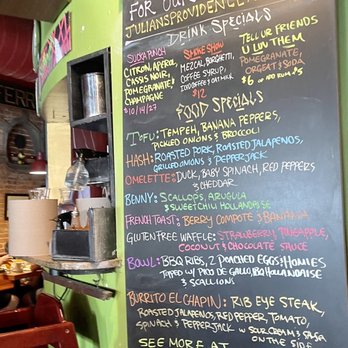 FOR OUR
JULIANSPROVIDENCE
DRINK SPECIALS
SUCKA PUNCH
CITRON, APEROL,
CASSIS NOIR,
POMEGRANATE &
CHAMPAGNE
$10/14/27
SMOKE SHOW
MEZCAL, BORGHETTI,
COFFEE SYRUP,
ICED COFFEE & OAT MILK
$12
TELL UR FRIENDS
U LUV THEM
POMEGRANATE,
ORGEAT & SODA
$6
FOOD SPECIALS
TOFU: TEMPEH, BANANA PEPPERS,
PICKLED ONIONS & BROCCOLI
HASH: ROASTED PORK, ROASTED JALAPENOS,
GRILLED ONIONS & PEPPERJACK
OMELETTE: DUCK, BABY SPINACH, RED PEPPERS
& CHEDDAR
BENNY: SCALLOPS, ARUGULA
& SWEET CHILI HOLLANDAISE
FRENCH TOAST: BERRY COMPOTE & BANANA
GLUTEN FREE WAFFLE: STRAWBERRY, PINEAPPLE,
COCONUT & CHOCOLATE SAUCE
BOWL: BBQ RIBS, 2 POACHED EGGS & HOMIES
TOPPED W/ PICO DE GALLO, BBQ HOLLANDAISE
& SCALLIONS
BURRITO EL CHAPIN: RIB EYE STEAK,
ROASTED JALAPENOS, RED PEPPER, TOMATO,
SPINACH & PEPPERJACK W/ SOUR CREAM & SALSA
ON THE SIDE
SEE MORE AT